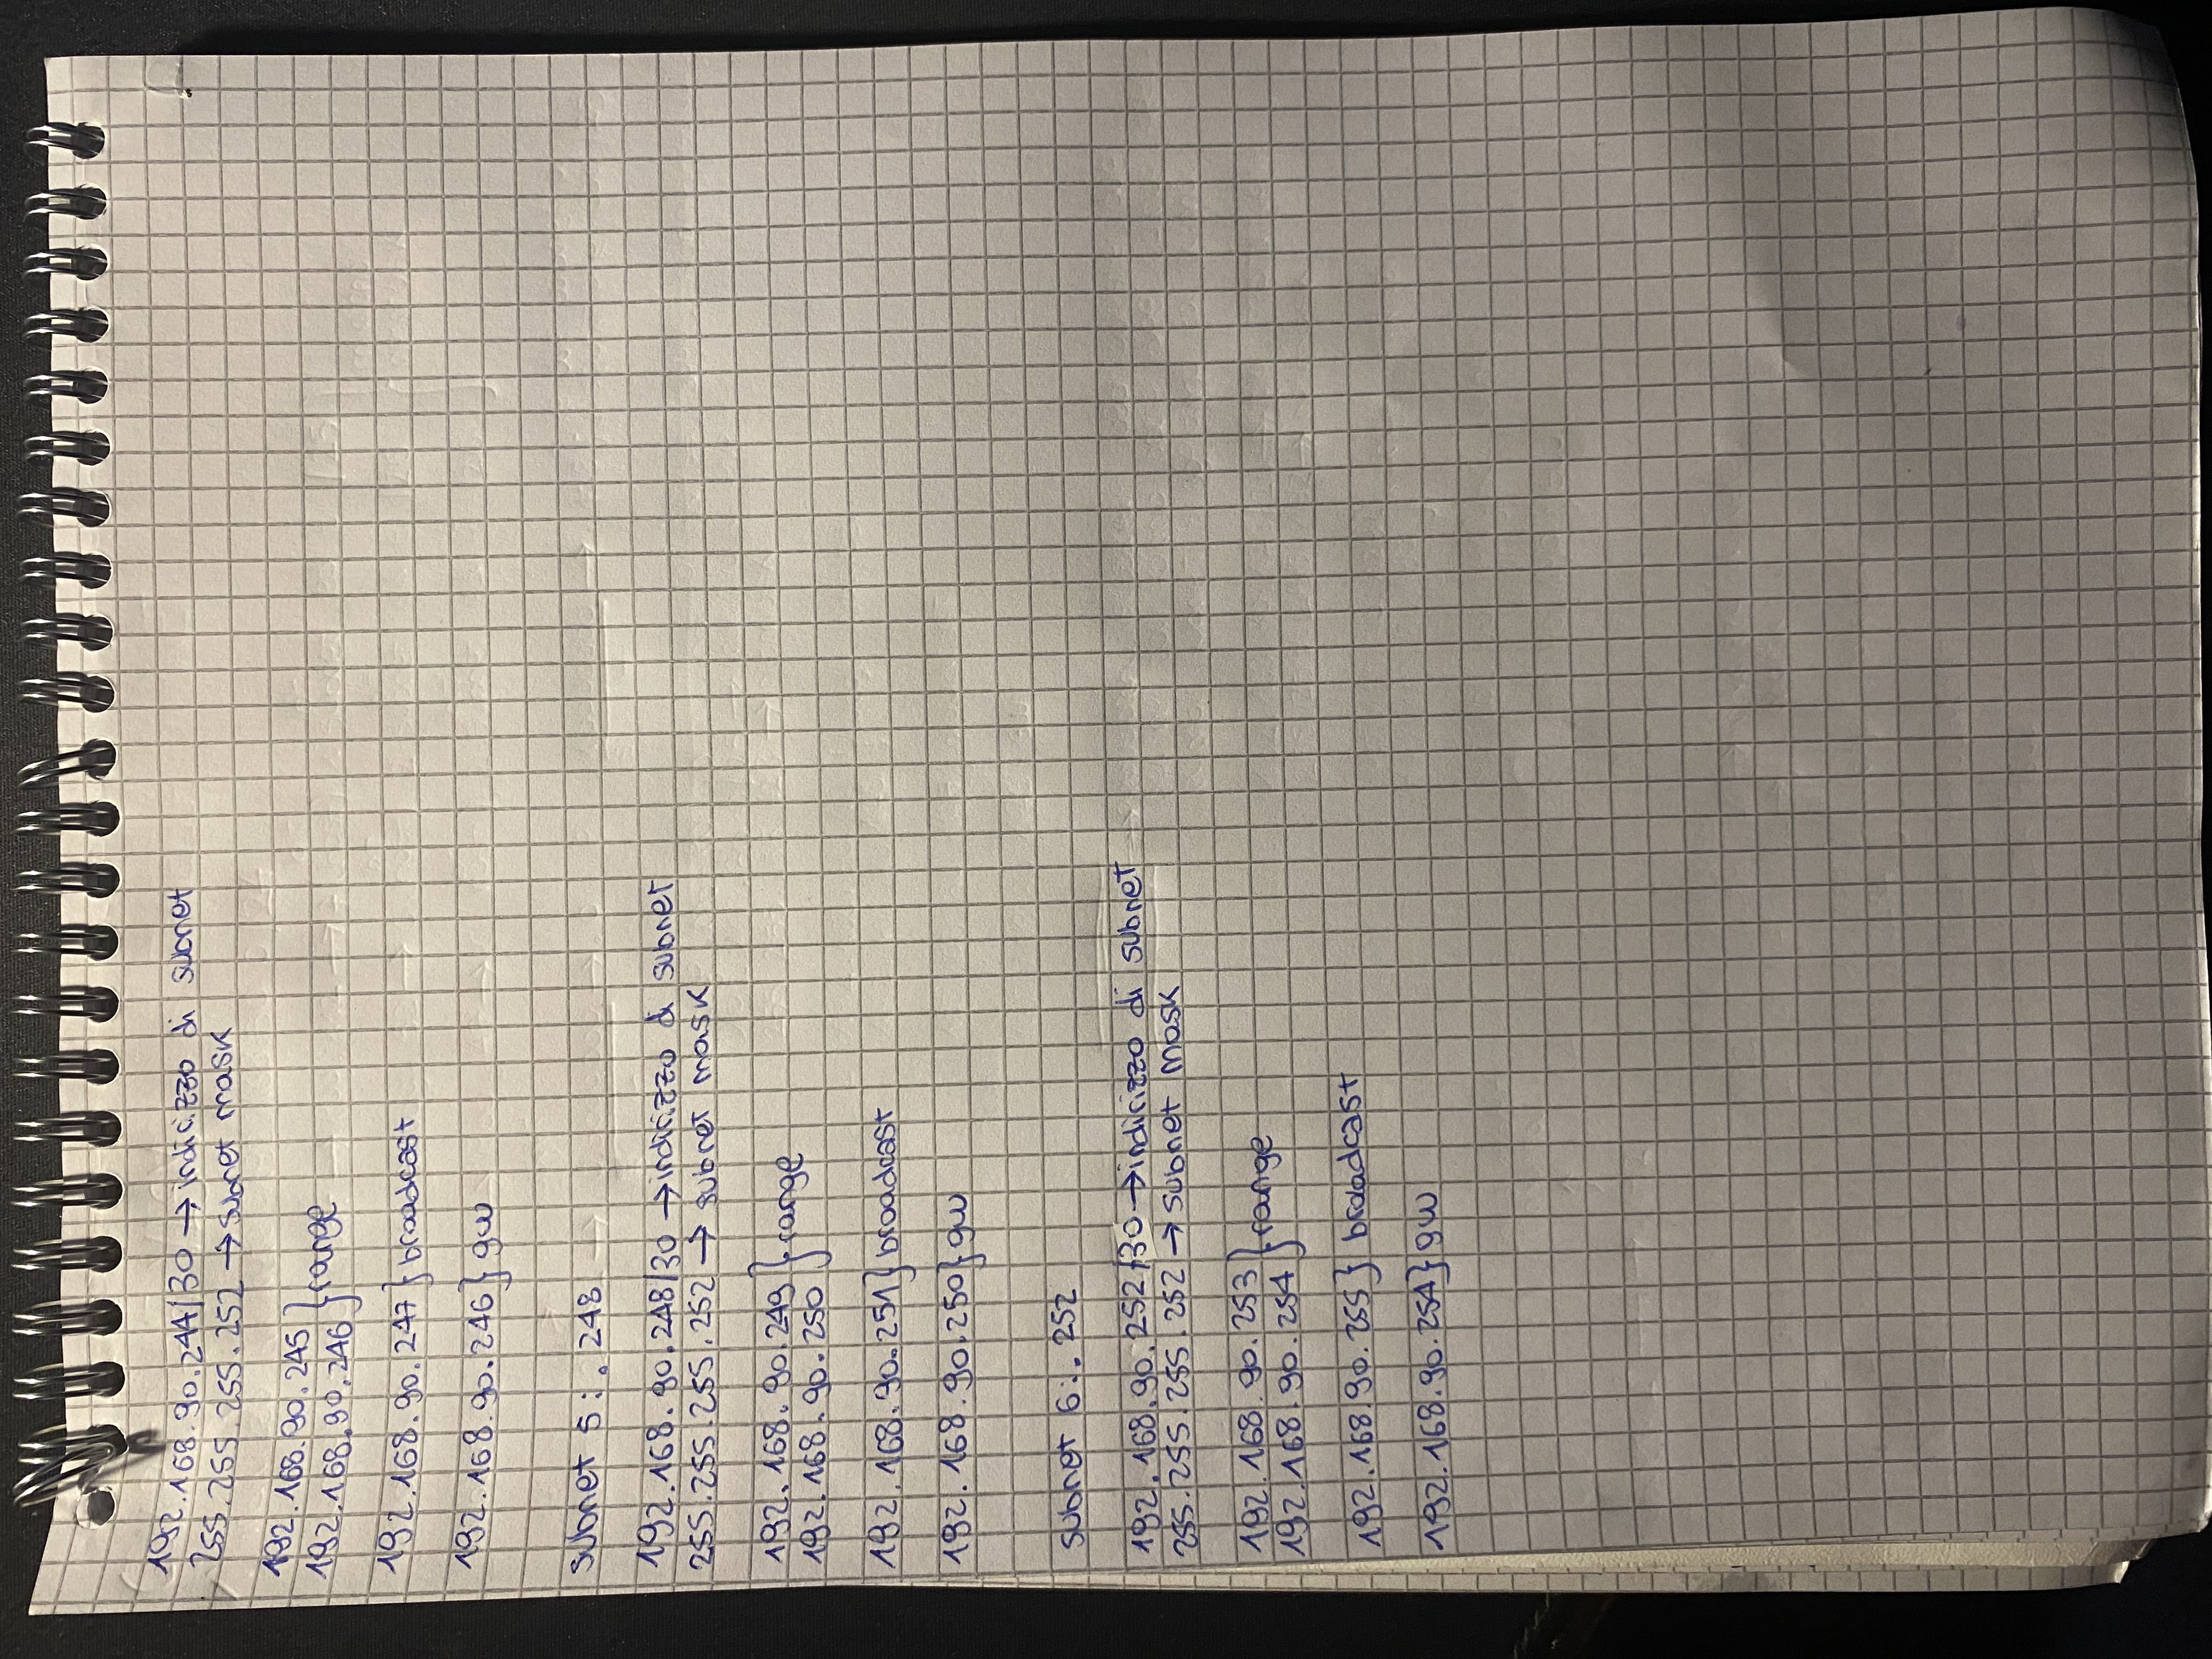 192.168.90.244/30 → indirizzo di subnet
255.255.255.252 → subnet mask
192.168.90.245
192.168.90.246 } range
192.168.90.247 } broadcast
192.168.90.246 } gw
subnet 5: .248
192.168.90.248/30 → indirizzo di subnet
255.255.255.252 → subnet mask
192.168.90.249
192.168.90.250 } range
192.168.90.251 } broadcast
192.168.90.250 } gw
subnet 6: .252
192.168.90.252/30 → indirizzo di subnet
255.255.255.252 → subnet mask
192.168.90.253
192.168.90.254 } range
192.168.90.255 } broadcast
192.168.90.254 } gw